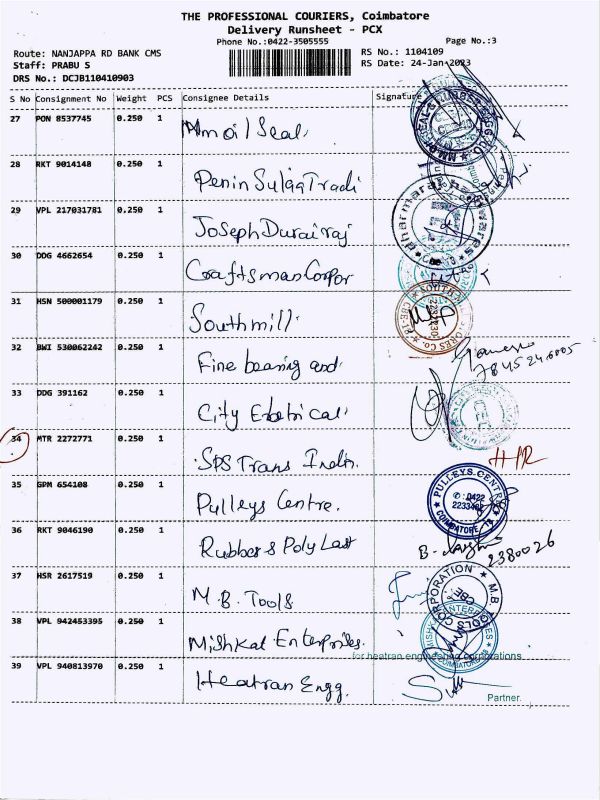 THE PROFESSIONAL COURIERS, Coimbatore
Delivery Runsheet - PCX
Phone No.:0422-3505555
Page No.:3
Route: NANJAPPA RD BANK CMS
RS No.: 1104109
Staff: PRABU S
RS Date: 24-Jan-2023
DRS No.: DCJB110410903
S No Consignment No Weight PCS Consignee Details Signature
27 PON 8537745 0.250 1 Mmoil Seal
28 RKT 9014148 0.250 1 Penin Sulaa Tradi
29 VPL 217031781 0.250 1 Joseph Durairaj
dharmaraj
30 DDG 4662654 0.250 1 Craftsman Corpor
31 HSN 500001179 0.250 1 Southmill
SOUTH MILL STORES Co.
32 BWI 530062242 0.250 1 Fine bearing and
33 DDG 391162 0.250 1 City Eletrical
34 MTR 2272771 0.250 1 SPS Trans India
35 GPM 654108 0.250 1 Pulleys Centre.
PULLEYS CENTRE
✆: 0422
COIMBATORE - 18
36 RKT 9046190 0.250 1 Rubber & Poly Last
2380026
37 HSR 2617519 0.250 1 M.B. Tools
M.B. TOOLS CORPORATION
CBE
38 VPL 942453395 0.250 1 Mishkal Enterprises.
MISHKAL ENTERPRISES
for heatran engineering corporations
39 VPL 940813970 0.250 1 Heatran Engg.
Partner.